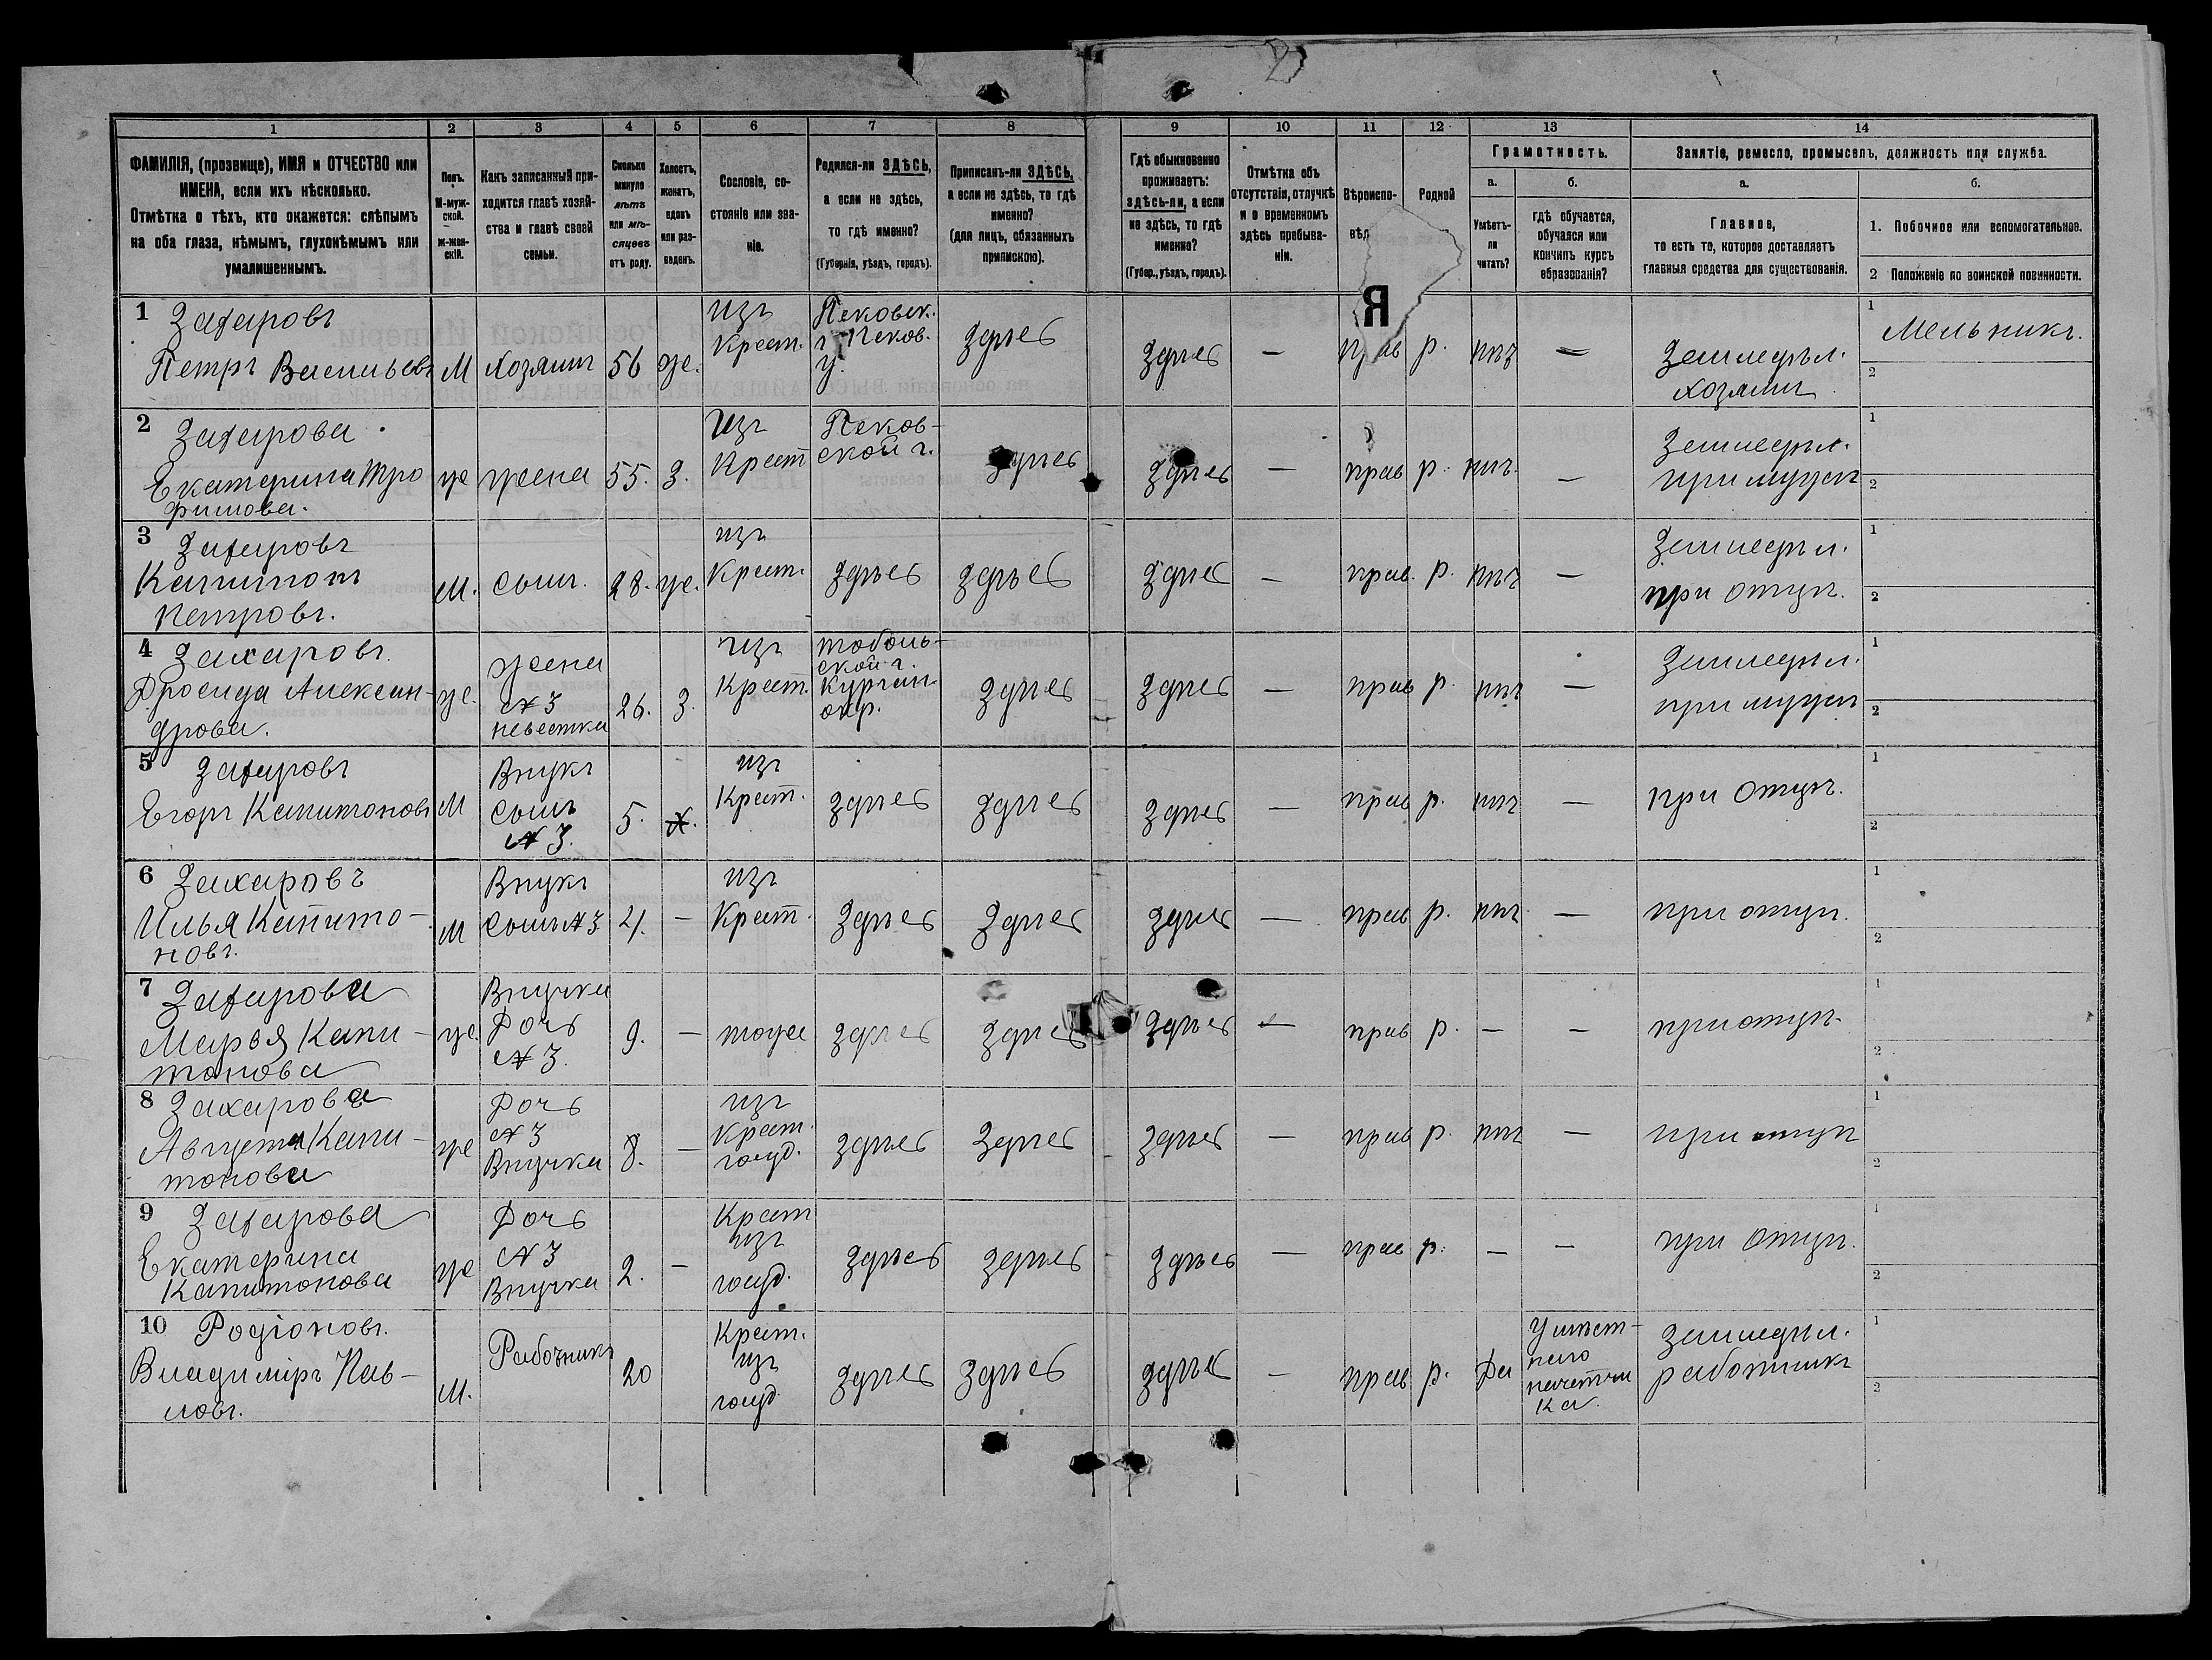 1 2 3 4 5 6 7 8 9 10 11 12 13 14
ФАМИЛІЯ, (прозвище), ИМЯ и ОТЧЕСТВО или
ИМЕНА, если ихъ нѣсколько.
Отмѣтка о тѣхъ, кто окажется: слѣпымъ
на оба глаза, нѣмымъ, глухонѣмымъ или
умалишеннымъ.
Полъ.
М-муж-
ской.
ж-жен-
скій.
Какъ записанный при-
ходится главѣ хозяй-
ства и главѣ своей
семьи.
Сколько
минуло
лѣтъ
или мѣ-
сяцевъ
отъ роду.
Холостъ,
женатъ,
вдовъ
или раз-
веденъ.
Сословіе, со-
стояніе или зва-
ніе.
Родился-ли ЗДѢСЬ,
а если не здѣсь,
то гдѣ именно?
(Губернія, уѣздъ, городъ).
Приписанъ-ли ЗДѢСЬ,
а если не здѣсь, то гдѣ
именно?
(для лицъ, обязанныхъ
припискою).
Гдѣ обыкновенно
проживаетъ:
здѣсь-ли, а если
не здѣсь, то гдѣ
именно?
(Губер., уѣздъ, городъ).
Отмѣтка объ
отсутствіи, отлучкѣ
и о временномъ
здѣсь пребыва-
ніи.
Вѣроиспо-
вѣд
Я
Родной
Грамотность.
а.
Умѣетъ-
ли
читать?
б.
гдѣ обучается,
обучался или
кончилъ курсъ
образованія?
Занятіе, ремесло, промыселъ, должность или служба.
а.
Главное,
то есть то, которое доставляетъ
главныя средства для существованія.
б.
1. Побочное или вспомогательное.
2 Положеніе по воинской повинности.
1 Захаровъ
Петръ Васильевъ
М
Хозяинъ
56
же.
изъ
Крест.
Псковск.
г. Псков.
у.
здѣсь
здѣсь
—
прав
р.
нѣтъ
—
Земледѣл.
хозяинъ
1 Мельникъ.
2
2 Захарова
Екатерина Тро
фимова.
же
жена
55.
З.
Изъ
Крест
Псков-
ской г.
здѣсь
здѣсь
—
прав
р.
нѣтъ.
—
Земледѣл.
при мужѣ
1
2
3 Захаровъ
Капитонъ
Петровъ.
М.
сынъ.
28.
же.
изъ
Крест.
здѣсь
здѣсь
здѣсь
—
прав.
р.
нѣтъ
—
Земледѣл.
при отцѣ.
1
2
4 Захаровъ.
Дросида Алексан-
дрова.
же.
жена
№ 3
невестка
26.
З.
изъ
Крест.
тоболь-
ской г.
Курган.
окр.
здѣсь
здѣсь
—
прав
р.
нѣтъ
—
Земледѣл.
при мужѣ
1
2
5 Захаровъ
Егоръ Капитоновъ
М
Внукъ
сынъ
№ 3.
5.
х.
изъ
Крест.
здѣсь
здѣсь
здѣсь
—
прав
р.
нѣтъ
—
при отцѣ.
1
2
6 Захаровъ
Илья Капито-
новъ.
М
Внукъ
сынъ № 3
4.
—
изъ
Крест.
здѣсь
здѣсь
здѣсь
—
прав
р.
нѣтъ
—
при отцѣ.
1
2
7 Захарова
Марья Капи-
тонова
же.
Внучка
Дочь
№ 3.
9.
—
тоже
здѣсь
здѣсь
здѣсь
—
прав
р.
—
—
при отцѣ.
1
2
8 Захарова
Августа Капи-
тонова
же
Дочь
№ 3
Внучка
8.
—
изъ
Крест.
госуд.
здѣсь
здѣсь
здѣсь
—
прав
р.
нѣтъ
—
при отцѣ
1
2
9 Захарова
Екатерина
Капитонова
же
Дочь
№ 3
Внучка
2.
—
Крест
изъ
госуд.
здѣсь
здѣсь
здѣсь
—
прав
р.
—
—
при отцѣ.
1
2
10 Родіоновъ.
Владиміръ Пав-
ловъ.
М.
Работникъ
20
Крест.
изъ
госуд.
здѣсь
здѣсь
здѣсь
—
прав
р.
Да
у мѣст-
наго
начетчи
ка.
земледѣл.
работникъ
1
2